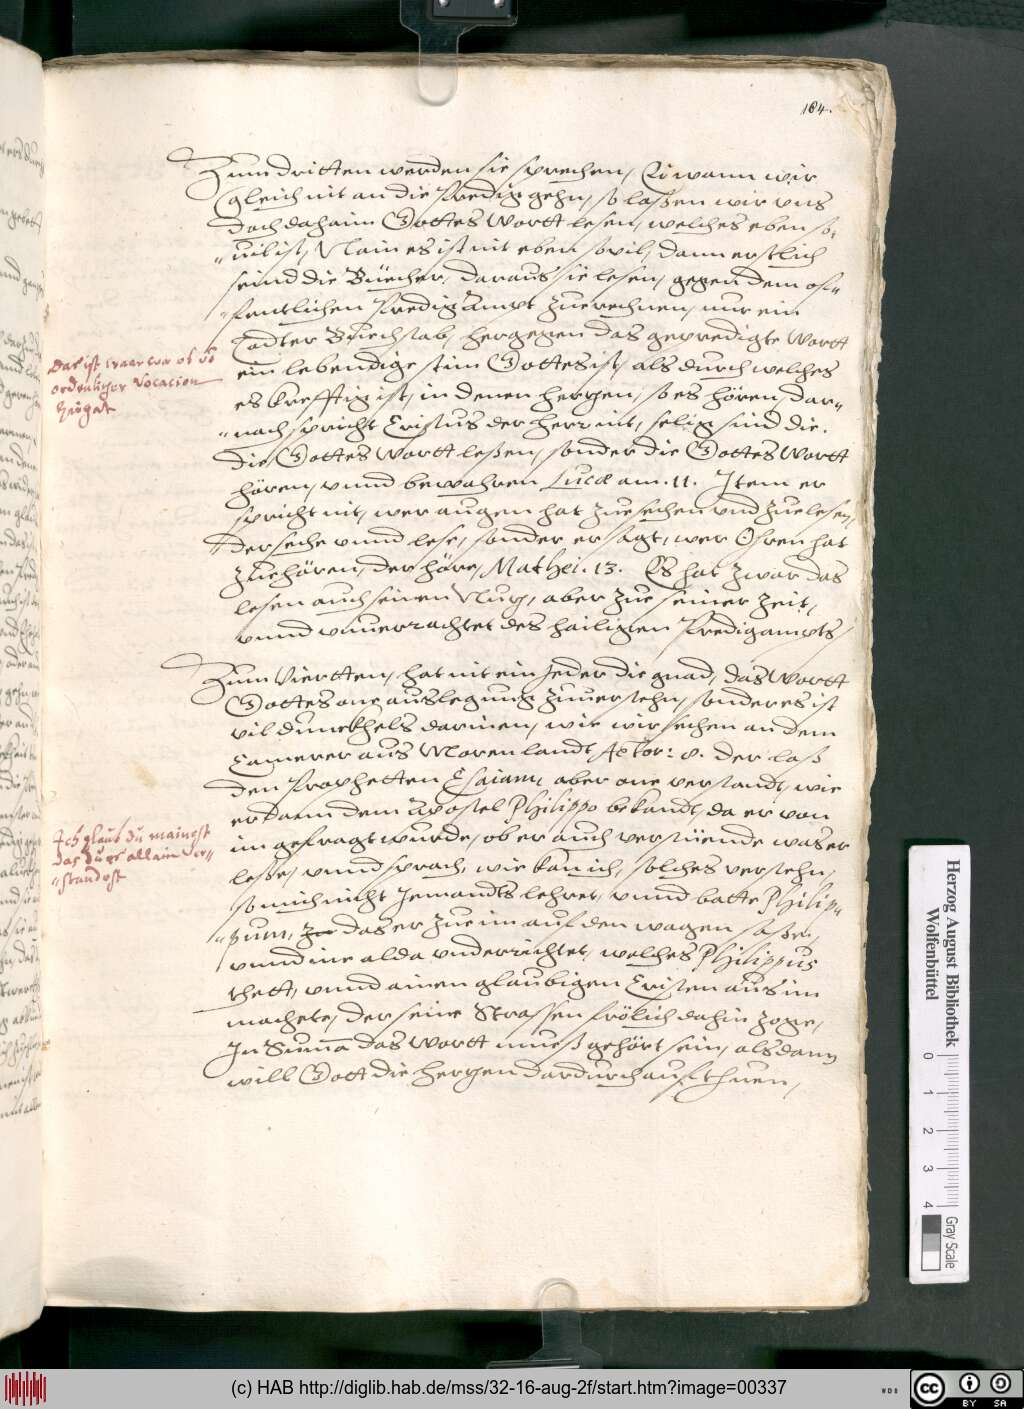 184.
Zum dritten werden sie sprechen, Ei wann wir
gleich nit an die Predig gehn, so laßen wir vns
doch dahaim Gottes Wortt lesen, welches eben so-
uil ist, Nain es ist nit eben souil, dann erstlich
seind die Büecher, daraus sie lesen, gegen dem of-
fentlichen Predig Ampt zuerechnen, nur ein
Todter Buechstab, hergegen das gepredigte Wortt
ein lebendige stim Gottes ist, als durch welches
es krefftig ist, in denen hertzen, so es hören, dar-
nach spricht Cristus der herr nit, selig sind die.
die Gottes Wortt leßen, sonder die Gottes Wortt
hören, vnnd bewahren Lucæ am .11. Item er
spricht nit, wer augen hat zuesechen vnd zuelesen,
der seche vnnd lese, sonder er sagt, wer Ohren hat
zuehören, der höre, Mathei. 13. Es hat zwar das
lesen auch seinen Nutz, aber zue seiner zeit,
vnnd vnuerrachtet des hailigen Predigampts,
Das ist waar wa es
ordenlicher Vocation
Zum Viertten, hat nit ein Jeder die gnad, das Wortt
Gottes one auslegung zuuerstehn, sonder es ist
vil dunckhels darinen, wie wir sechen an dem
Camerer aus Morenlandt, Actor: 8. der laß
den Prophetten Esaiam, aber one verstandt, wie
er dann dem Apostel Philippo bekandt, da er von
im gefragt wurde, ob er auch verstüende was er
leße, vnnd sprach, wie kan ich, solches verstehn,
so mich nicht Jemandts lehret, vnnd batte Philip-
pum, das er zue im auf den wagen saße,
vnnd ine alda vnderrichtet, welches Philippus
thett, vnnd ainen glaubigen Cristen aus im
machete, der seine Strassen frölich dahin zoge,
In Suma das Wortt mueß gehört sein, alsdann
will Gott die hertzen dardurch aufthuen,
Ich glaub du mainest
das du es allain Ver-
standest
Herzog August Bibliothek
Wolfenbüttel
0 1 2 3 4
Gray Scale
(c) HAB http://diglib.hab.de/mss/32-16-aug-2f/start.htm?image=00337
WDB
CC BY SA